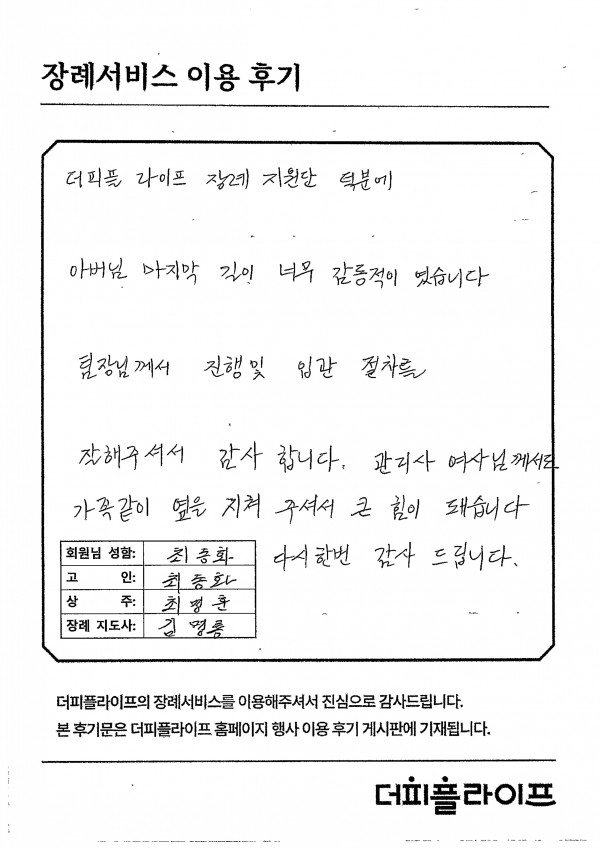 장례서비스 이용 후기
더피플 라이프 장례 지원단 덕분에
아버님 마지막 길이 너무 감동적이 였습니다
팀장님께서 진행및 입관 절차를
잘해주셔서 감사 합니다. 관리사 여사님께서도
가족같이 옆을 지켜 주셔서 큰 힘이 돼습니다
다시한번 감사 드립니다.
회원님 성함: 최종화
고 인: 최종화
상 주: 최명훈
장례 지도사: 김명룡
더피플라이프의 장례서비스를 이용해주셔서 진심으로 감사드립니다.
본 후기문은 더피플라이프 홈페이지 행사 이용 후기 게시판에 기재됩니다.
더피플라이프